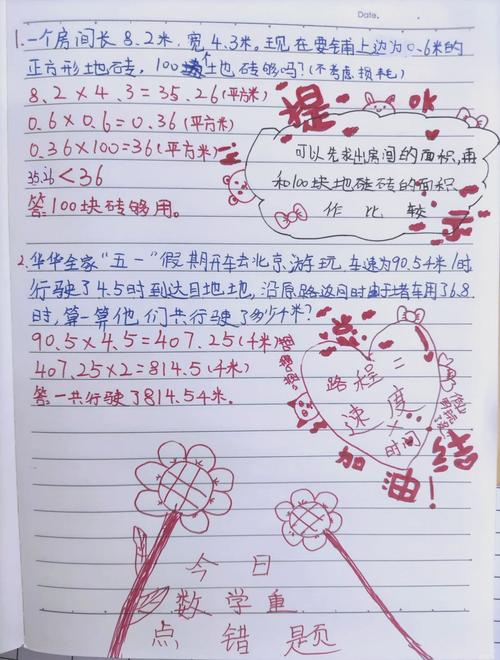 Date.
1.一个房间长8.2米,宽4.3米。现在要铺上边为0.6米的
正方形地砖,100块地砖够吗?(不考虑损耗)
8.2×4.3=35.26(平方米)
0.6×0.6=0.36(平方米)
0.36×100=36(平方米)
35.26<36
答100块砖够用。
提示
OK
可以先求出房间的面积,再
和100块地砖的面积
作比较
2.华华全家“五一”假期开车去北京游玩,车速为90.5千米/时
行驶了4.5时到达目地地,沿原路返回时由于堵车用了6.8
时,算一算他们共行驶了多少千米?
90.5×4.5=407.25(千米)
407.25×2=814.5(千米)
答一共行驶了814.5千米。
路程=
速度
×
时间
加油!
今日
数学重
点错题